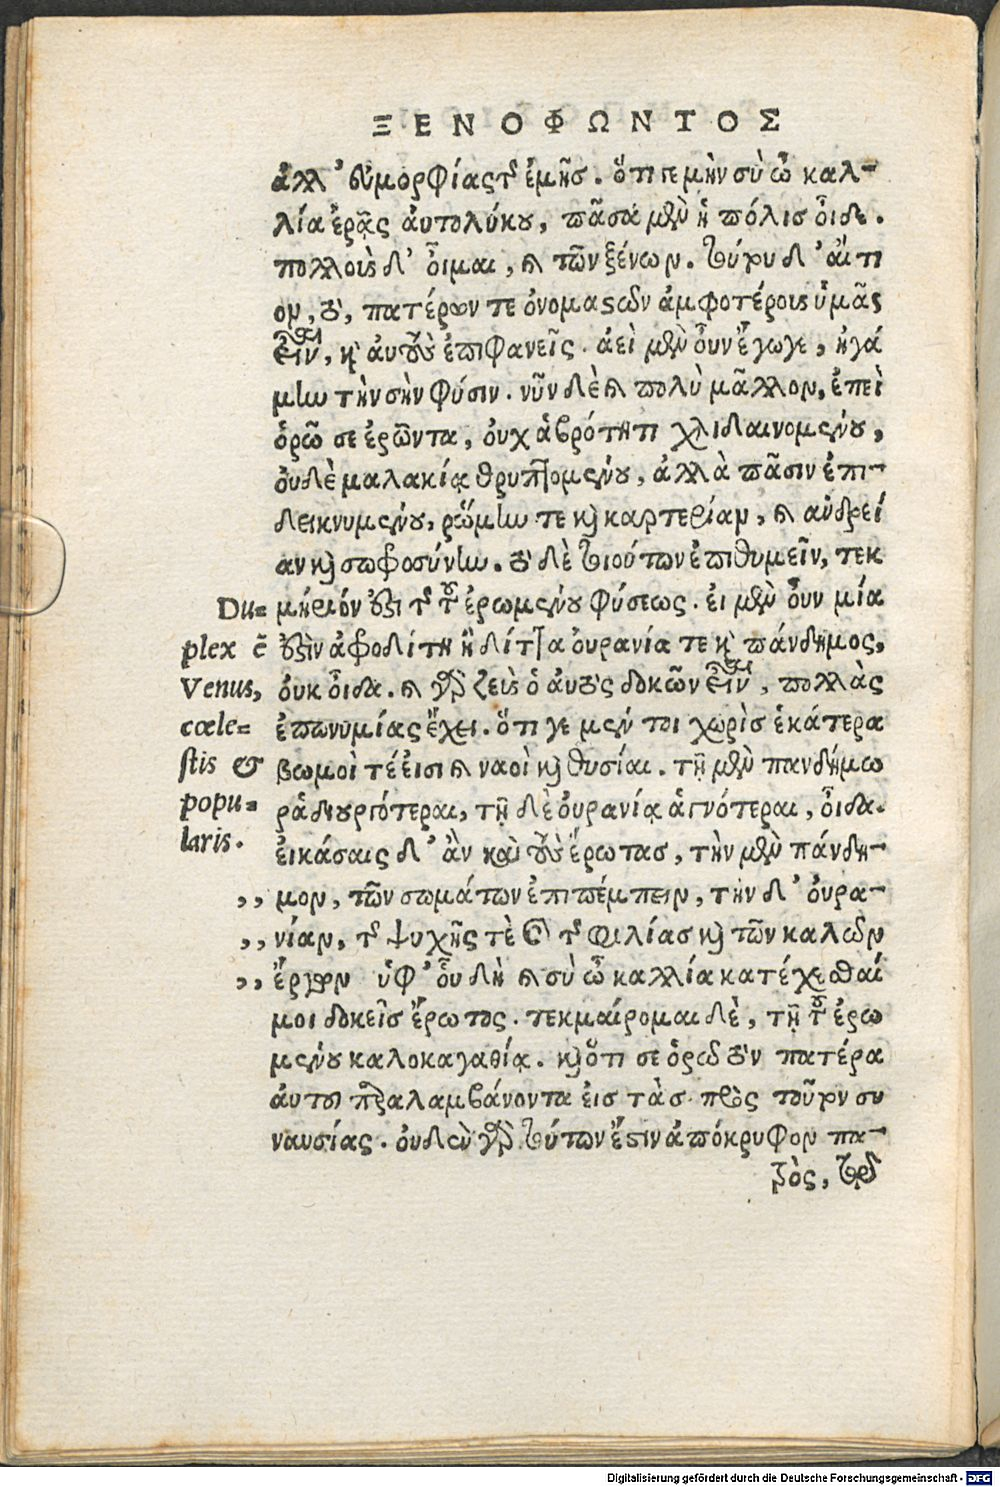 ΞΕΝΟΦΩΝΤΟΣ
ἀλλ' εὐμορφίας τῆς ἐμῆς. ὅτι γε μὴν σὺ ὦ καλ-
λία ἐρᾷς ἀυτολύκου, πᾶσα μὲν ἡ πόλις οἶδε.
πολλοὺς δ' οἶμαι, καὶ τῶν ξένων. τούτου δ' ἄιτι
ον, τὸ, πατέρων τε ὀνομαστῶν ἀμφοτέρους ὑμᾶς
εἶναι, καὶ ἀυτοὺς ἐπιφανεῖς. ἀεὶ μὲν οὖν ἔγωγε, ἠγά
μην τὴν σὴν φύσιν. νῦν δὲ καὶ πολὺ μᾶλλον, ἐπεὶ
ὁρῶ σε ἐρῶντα, ὀυχ ἁβρότητι χλιδαινομένου,
ὀυδὲ μαλακίᾳ θρυπτομένου, ἀλλὰ πᾶσιν ἐπι-
δεικνυμένου, ῥώμην τε καὶ καρτερίαν, καὶ ἀνδρεί
αν καὶ σωφροσύνην. τὸ δὲ τοιούτων ἐπιθυμεῖν, τεκ
Du= μήριόν ἐστι τῆς τοῦ ἐρωμένου φύσεως. ἐι μὲν οὖν μία
plex ē ἐστὶν ἀφροδίτη ἢ διτταὶ ὀυρανία τε καὶ πάνδημος,
Venus, ὀυκ οἶδα. καὶ γὰρ ζεὺς ὁ ἀυτὸς δοκῶν εἶναι, πολλὰς
cœle= ἐπωνυμίας ἔχει. ὅτι γε μέν τοι χωρὶς ἑκάτερα
stis & βωμοὶ τέ ἐισι καὶ ναοὶ καὶ θυσίαι. τῇ μὲν πανδήμῳ
popu= ῥᾳδιουργότεραι, τῇ δὲ ὀυρανίᾳ ἁγνότεραι, οἶδα.
laris. ἐικάσαις δ' ἂν καὶ τοὺς ἔρωτας, τὴν μὲν πάνδη-
,, μον, τῶν σωμάτων ἐπιπέμπειν, τὴν δ' ὀυρα-
,, νίαν, τῆς ψυχῆς τὲ καὶ τῆς φιλίας καὶ τῶν καλῶν
,, ἔργων ὑφ' οὗ δὴ καὶ σὺ ὦ καλλία κατέχεσθαί
μοι δοκεῖς ἔρωτος. τεκμαίρομαι δὲ, τῇ τοῦ ἐρω
μένου καλοκαγαθίᾳ. καὶ ὅτι σε ὁρῶ τὸν πατέρα
ἀυτοῦ παραλαμβάνοντα ἐις τὰς πρὸς τοῦτον συ
νουσίας. ὀυδὲν γὰρ τούτων ἔστιν ἀπόκρυφον πα-
τρὸς, τῷ